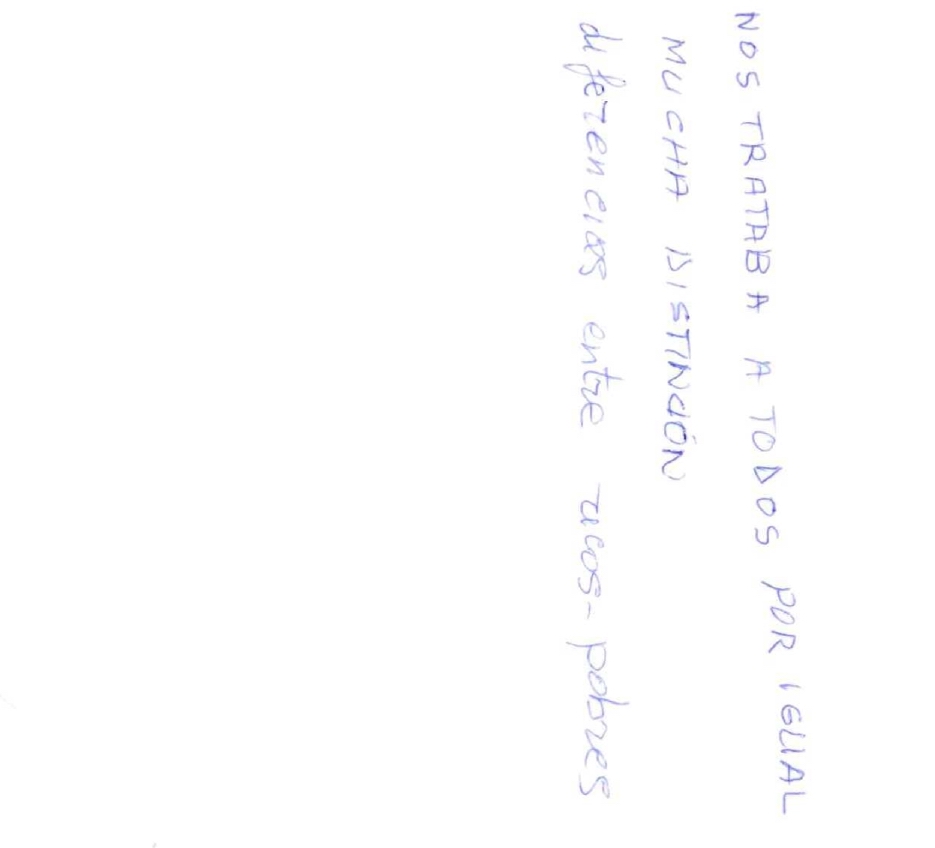 NOS TRATABA A TODOS POR IGUAL
MUCHA DISTINCIÓN
diferencias entre ricos-pobres